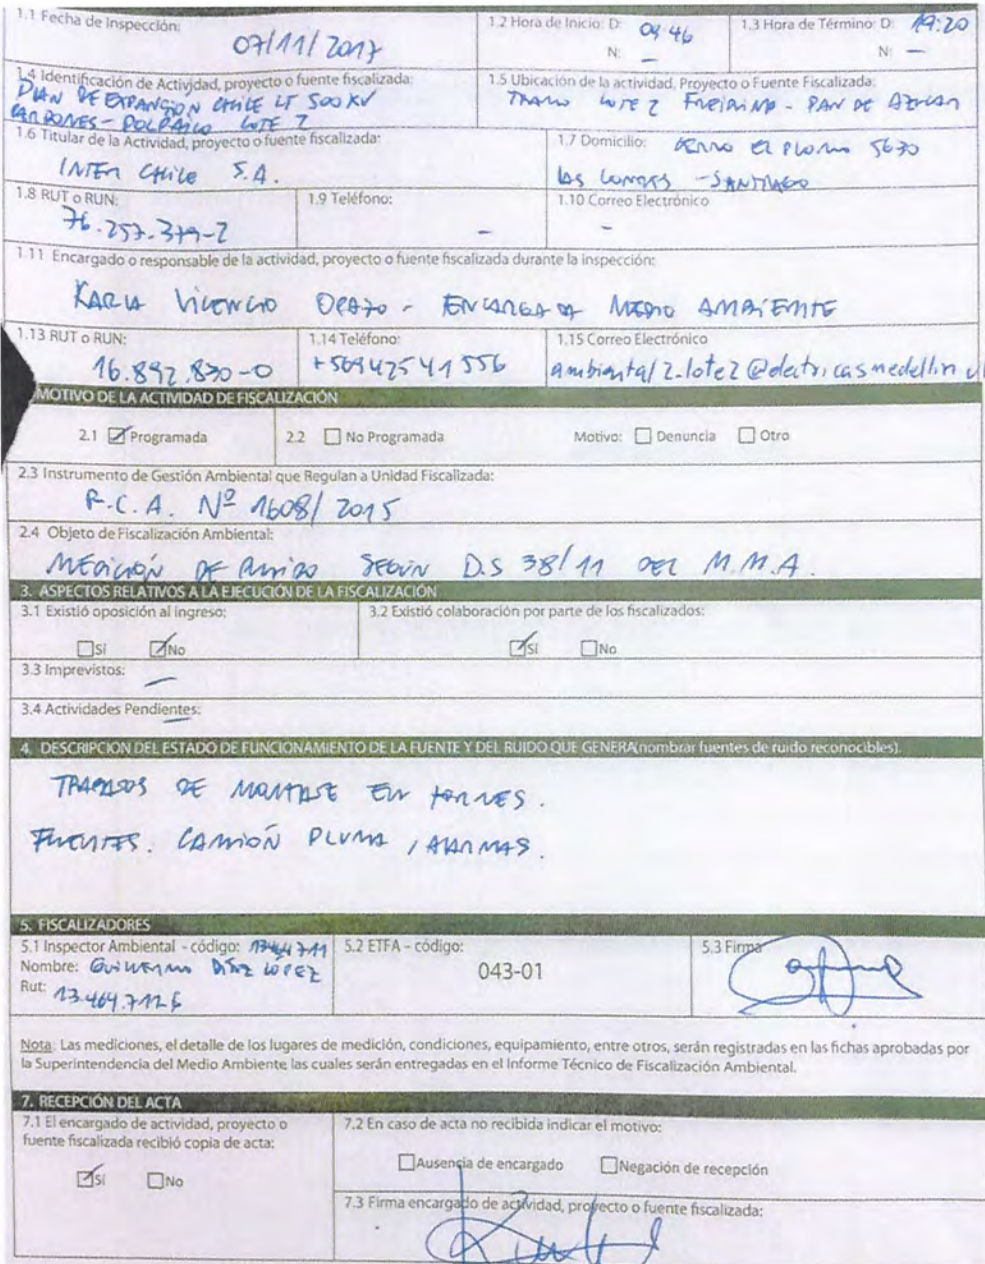 1.1 Fecha de Inspección: 07/11/2017
1.2 Hora de Inicio: D: 09:46
N: —
1.3 Hora de Término: D: 19:20
N: —
1.4 Identificación de Actividad, proyecto o fuente fiscalizada:
PLAN DE EXPANCION CHILE LT 500 KV
CARDONES - POLPAICO LOTE 2
1.5 Ubicación de la actividad, Proyecto o Fuente Fiscalizada:
TRAMO LOTE 2 FREIRINA - PAN DE AZUCAR
1.6 Titular de la Actividad, proyecto o fuente fiscalizada:
INTER CHILE S.A.
1.7 Domicilio: CERRO EL PLOMO 5630
LAS CONDES - SANTIAGO
1.8 RUT o RUN:
76.257.379-2
1.9 Teléfono:
-
1.10 Correo Electrónico
-
1.11 Encargado o responsable de la actividad, proyecto o fuente fiscalizada durante la inspección:
KARLA VICENCIO OPAZO - ENCARGADA MEDIO AMBIENTE
1.13 RUT o RUN:
16.892.830-0
1.14 Teléfono:
+56942541556
1.15 Correo Electrónico
ambiental2.lote2@electricasmedellin.cl
MOTIVO DE LA ACTIVIDAD DE FISCALIZACIÓN
2.1 Programada
2.2 No Programada
Motivo: Denuncia Otro
2.3 Instrumento de Gestión Ambiental que Regulan a Unidad Fiscalizada:
R.C.A. Nº 1608/2015
2.4 Objeto de Fiscalización Ambiental:
MEDICIÓN DE RUIDO SEGÚN D.S 38/11 DEL M.M.A.
3. ASPECTOS RELATIVOS A LA EJECUCIÓN DE LA FISCALIZACIÓN
3.1 Existió oposición al ingreso:
Sí No
3.2 Existió colaboración por parte de los fiscalizados:
Sí No
3.3 Imprevistos: —
3.4 Actividades Pendientes: —
4. DESCRIPCION DEL ESTADO DE FUNCIONAMIENTO DE LA FUENTE Y DEL RUIDO QUE GENERA(nombrar fuentes de ruido reconocibles).
TRABAJOS DE MONTAJE EN TORRES.
FUENTES. CAMIÓN PLUMA, ALARMAS.
5. FISCALIZADORES
5.1 Inspector Ambiental - código: 13464711
Nombre: GUILLERMO DÍAZ LOPEZ
Rut: 13.464.711-6
5.2 ETFA - código:
043-01
5.3 Firma
Nota: Las mediciones, el detalle de los lugares de medición, condiciones, equipamiento, entre otros, serán registradas en las fichas aprobadas por
la Superintendencia del Medio Ambiente las cuales serán entregadas en el Informe Técnico de Fiscalización Ambiental.
7. RECEPCIÓN DEL ACTA
7.1 El encargado de actividad, proyecto o
fuente fiscalizada recibió copia de acta:
Sí No
7.2 En caso de acta no recibida indicar el motivo:
Ausencia de encargado Negación de recepción
7.3 Firma encargado de actividad, proyecto o fuente fiscalizada: